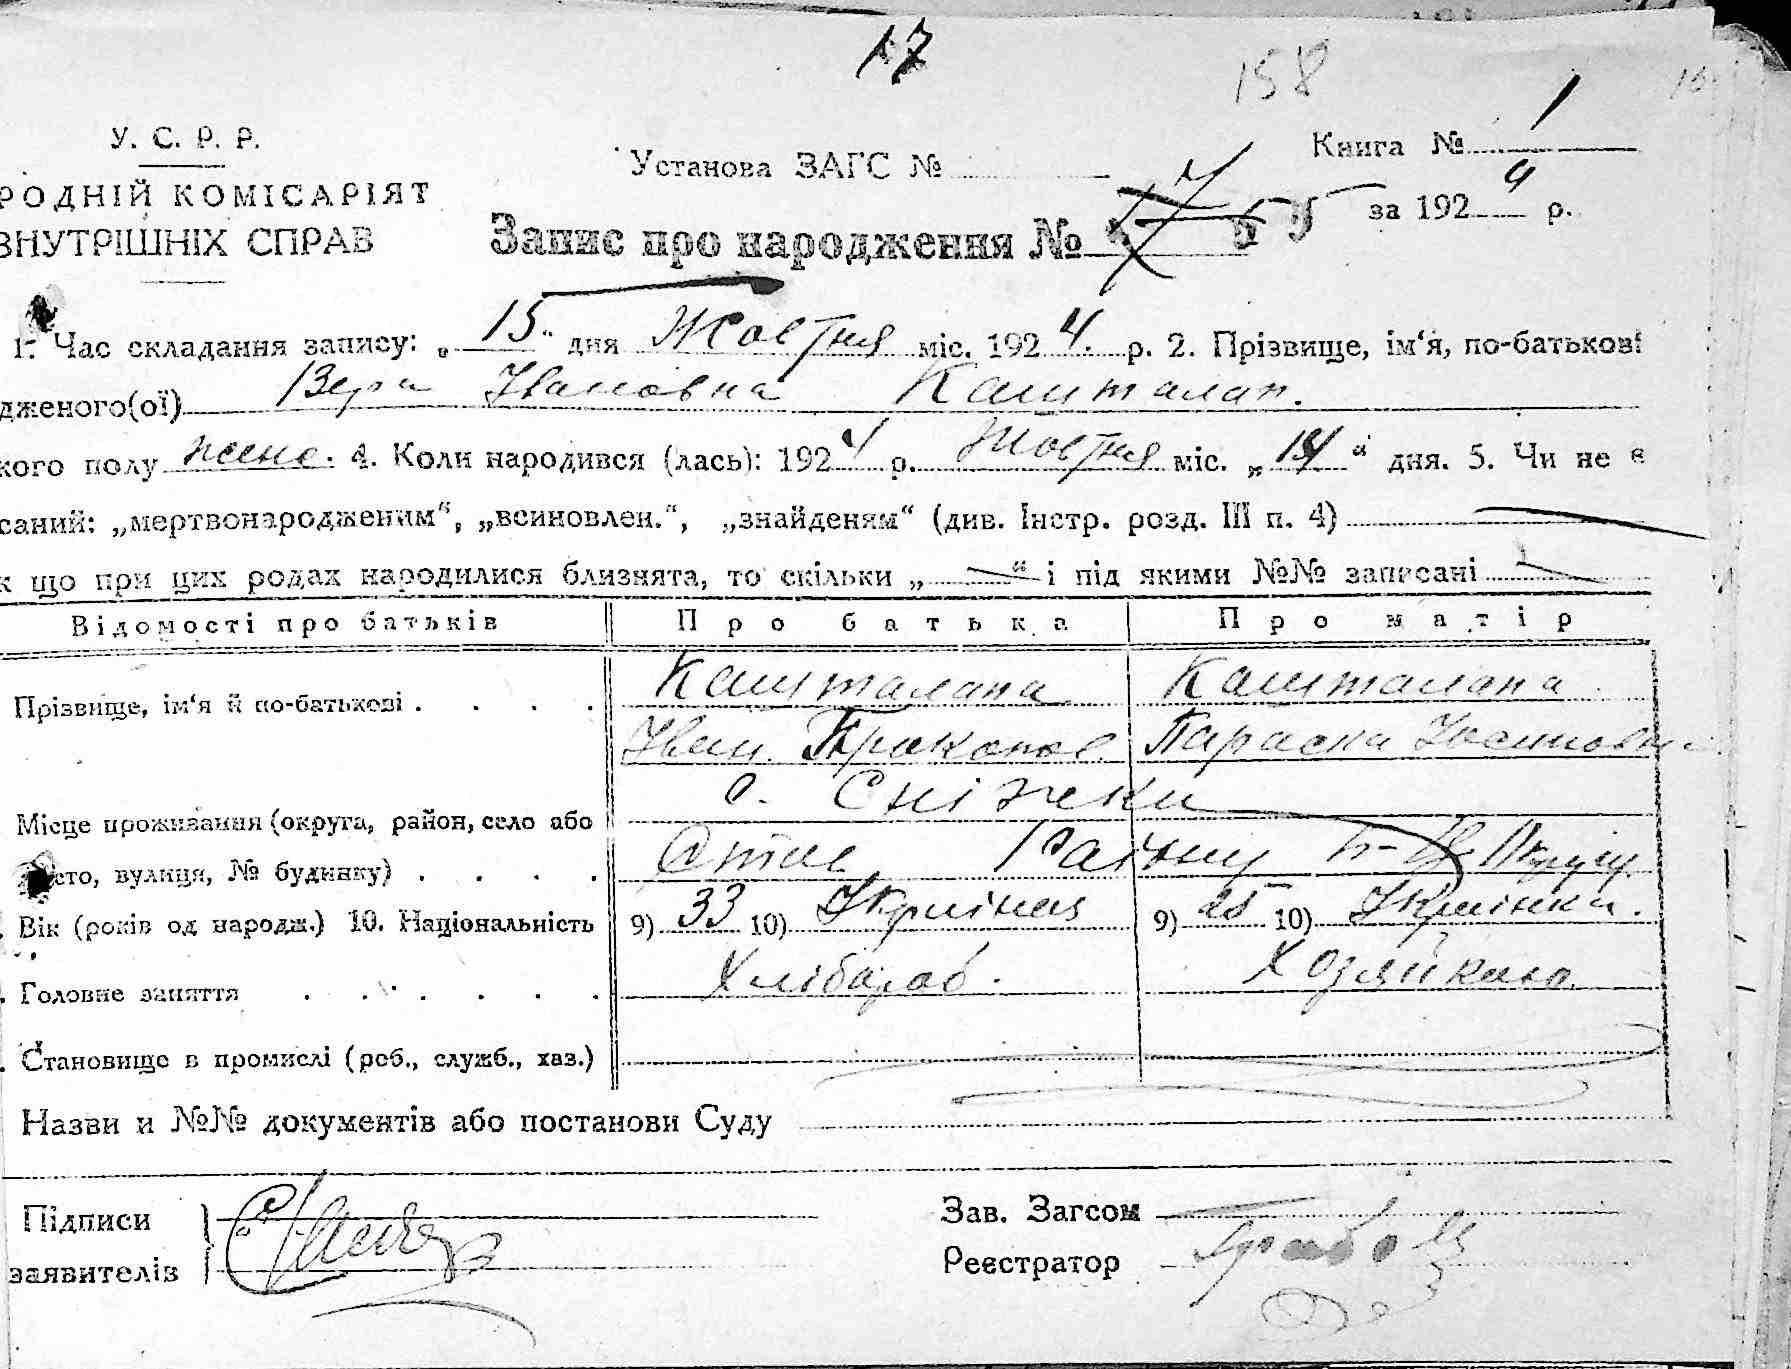 17
158
У. С. Р. Р.
Установа ЗАГС №
Книга № 1
РОДНІЙ КОМІСАРІЯТ
за 1924 р.
ВНУТРІШНІХ СПРАВ
Запис про народження №
1. Час складання запису: „15“ дня Жовтня міс. 1924 р. 2. Прізвище, ім‘я, по-батькові
дженого(ої) Вера Івановна Кашталап.
кого полу женс. 4. Коли народився (лась): 1924 р. Жовтня міс. „14“ дня. 5. Чи не є
саний: „мертвонародженим“, „всиновлен.“, „знайденям“ (див. Інстр. розд. III п. 4)
к що при цих родах народилися близнята, то скільки „ “ і під якими №№ записані
Відомості про батьків Про батька Про матір
Прізвище, ім‘я й по-батькові . . . . Кашталапа Кашталапа
Іван Прокопов Параска Йосиповна
с. Сніжки
Місце проживання (округа, район, село або
сто, вулиця, № будинку) . . . . Став Району Б-Ц Округи
Вік (років од народж.) 10. Національність 9) 33 10) Українец 9) 25 10) Українка.
. Головне заняття . . . . . . Хлібороб. Хозяйкою
. Становище в промислі (роб., служб., хаз.)
Назви и №№ документів або постанови Суду
Підписи
Зав. Загсом
заявителів
Реєстратор